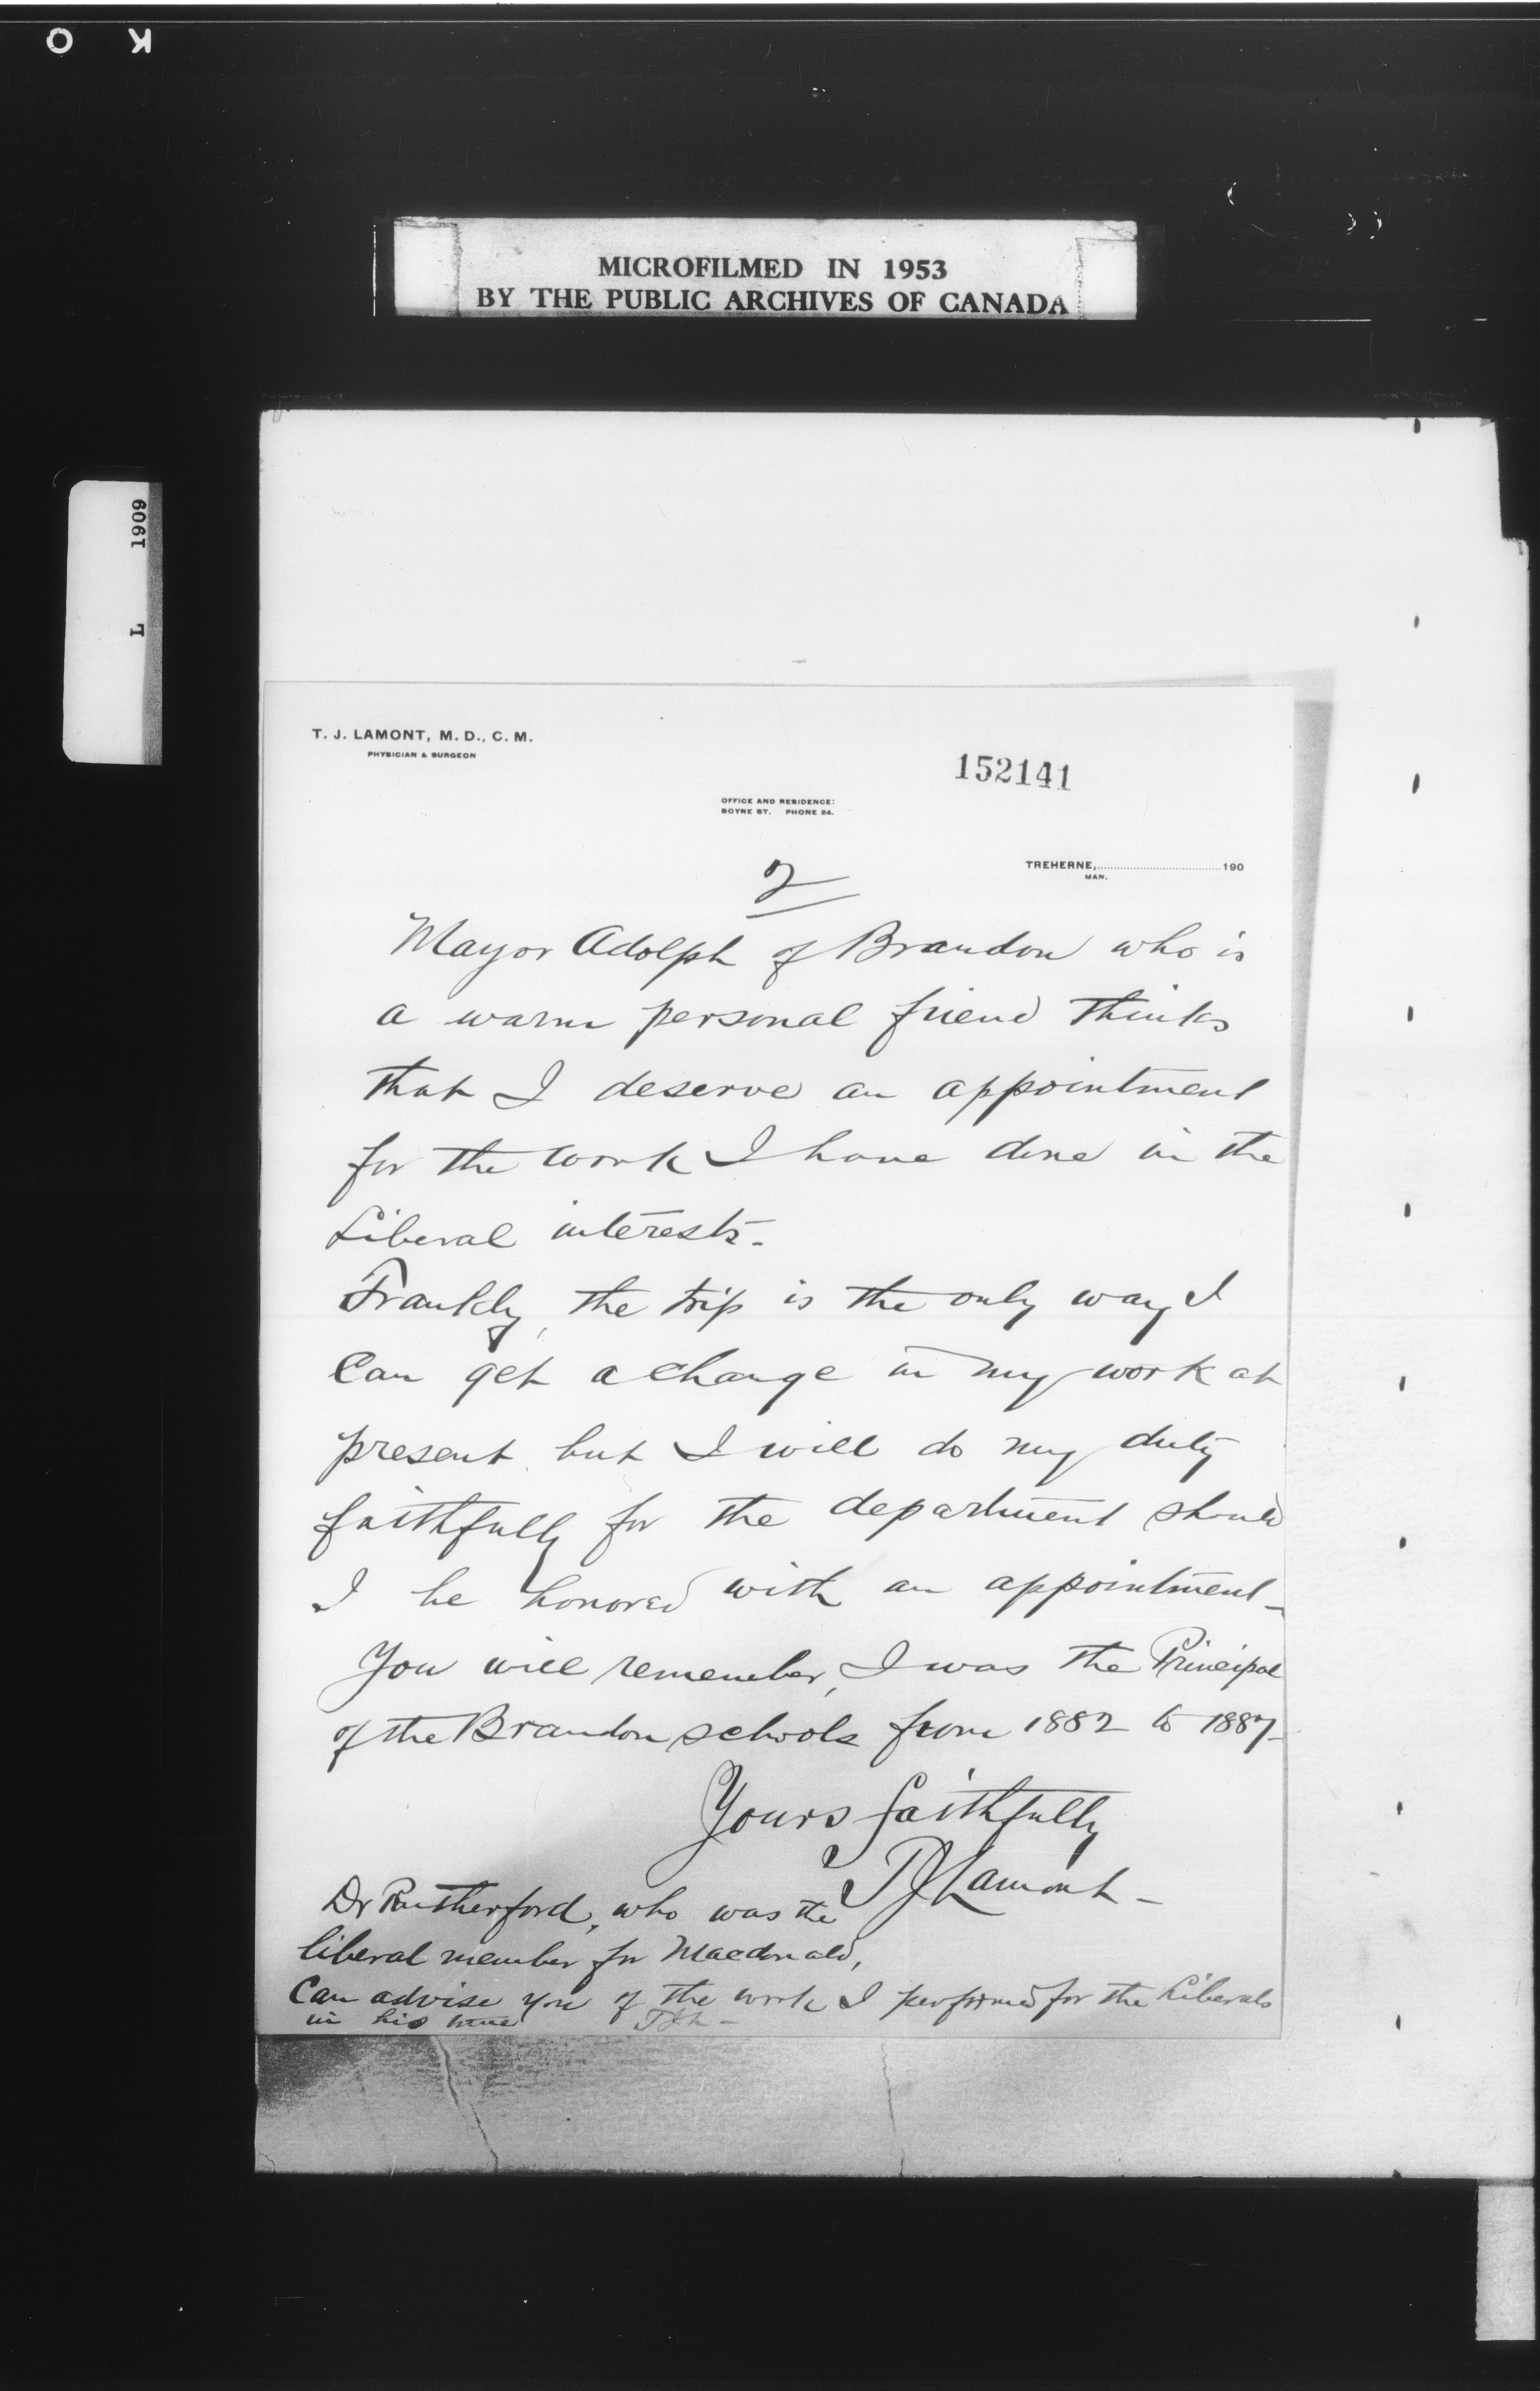 O K
MICROFILMED IN 1953
BY THE PUBLIC ARCHIVES OF CANADA
L 1909
T. J. LAMONT, M. D., C. M.
PHYSICIAN & SURGEON
152141
OFFICE AND RESIDENCE:
BOYNE ST. PHONE 24.
TREHERNE, 190
MAN.
2
Mayor Adolph of Brandon who is
a warm personal friend thinks
that I deserve an appointment
for the work I have done in the
Liberal interests -
Frankly, the trip is the only way I
can get a change in my work at
present, but I will do my duty
faithfully for the department should
I be honored with an appointment -
You will remember, I was the Principal
of the Brandon schools from 1882 to 1887 -
Yours faithfully
TJ Lamont -
Dr Rutherford, who was the
liberal member for Macdonald,
Can advise you of the work I performed for the Liberals
in his time